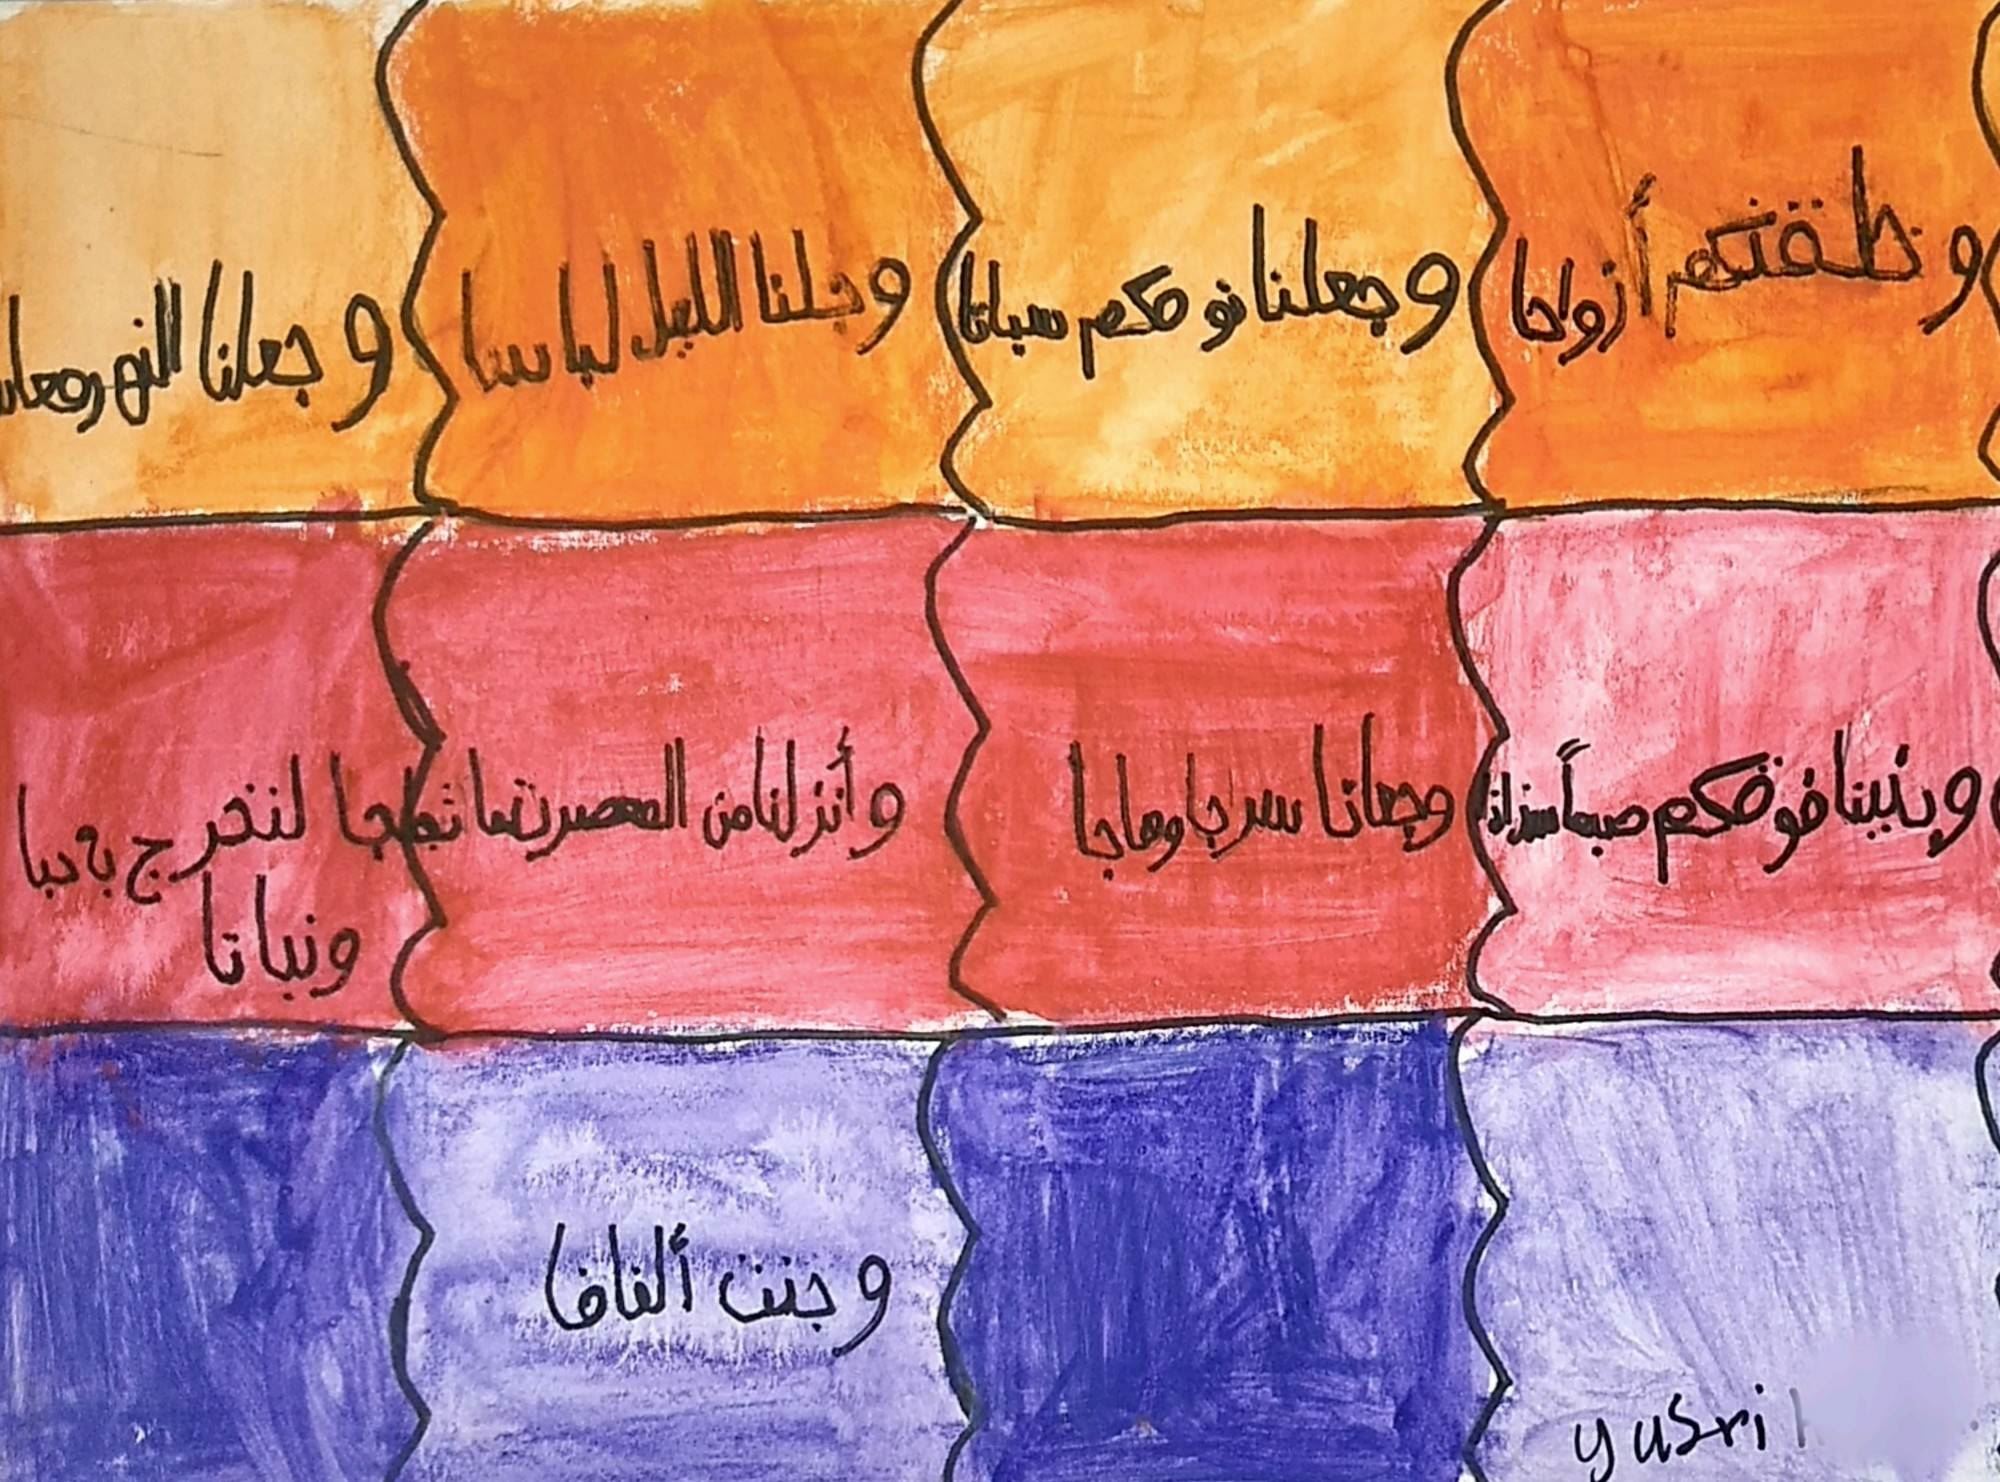 وخلقنكم أزواجا
وجعلنا نومكم سباتا
وجلنا الليل لباسا
وجعلنا النهر معاس
وبنينا فوقكم سبعاً شدادا
وجعلنا سرجا وهاجا
وأنزلنا من المعصرت ماء ثجاجا لنخرج به حبا
ونباتا
وجنت ألفافا
yusri